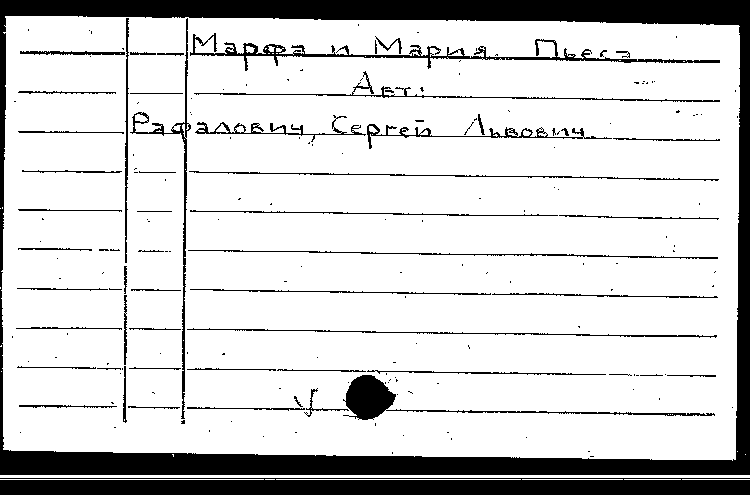 Марфа и Мария. Пьеса
Авт.:
Рафалович, Сергей Львович.